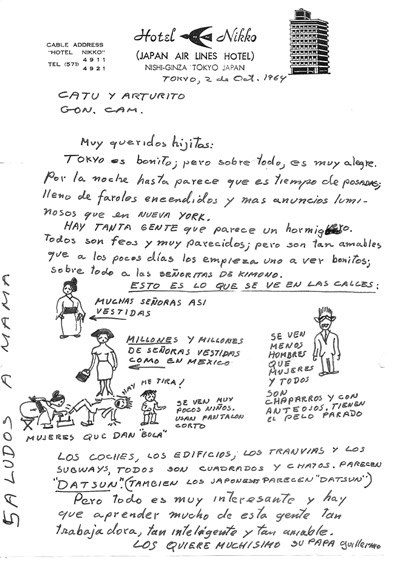 CABLE ADDRESS
"HOTEL NIKKO"
TEL (571) 4911
4921
Hotel Nikko
(JAPAN AIR LINES HOTEL)
NISHI-GINZA TOKYO JAPAN
TOKYO, 2 de Oct. 1964
CATU Y ARTURITO
GON. CAM.
Muy queridos hijitos:
TOKYO es bonito; pero sobre todo, es muy alegre.
Por la noche hasta parece que es tiempo de POSADAS;
lleno de faroles encendidos y mas anuncios lumi-
nosos que en NUEVA YORK.
HAY TANTA GENTE que parece un hormiguero.
Todos son feos y muy parecidos; pero son tan amables
que a los pocos días los empieza uno a ver bonitos;
sobre todo a las SEÑORITAS DE KIMONO.
ESTO ES LO QUE SE VE EN LAS CALLES:
MUCHAS SEÑORAS ASI
VESTIDAS
MILLONES Y MILLONES
DE SEÑORAS VESTIDAS
COMO EN MEXICO
SE VEN
MENOS
HOMBRES
QUE
MUJERES
Y TODOS
SON
CHAPARROS Y CON
ANTEOJOS. TIENEN
EL PELO PARADO
HAY ME TIRA!
SE VEN MUY
POCOS NIÑOS.
USAN PANTALON
CORTO
MUJERES QUE DAN "BOLA"
LOS COCHES, LOS EDIFICIOS, LOS TRANVIAS Y LOS
SUBWAYS, TODOS SON CUADRADOS Y CHATOS. PARECEN
"DATSUN". (TAMBIEN LOS JAPONESES PARECEN "DATSUN")
Pero todo es muy interesante y hay
que aprender mucho de esta gente tan
trabajadora, tan inteligente y tan amable.
LOS QUIERE MUCHISIMO SU PAPA Guillermo
SALUDOS A MAMA